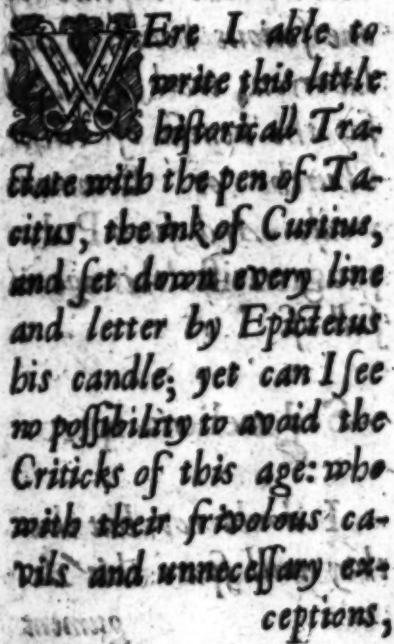 WEre I able to
write this little
hiſtoricall Tra-
ctate with the pen of Ta-
citus, the ink of Curtius,
and ſet down every line
and letter by Epictetus
his candle; yet can I ſee
no poſſibility to avoid the
Criticks of this age: who
with their frivolous ca-
vils and unneceſſary ex-
ceptions,